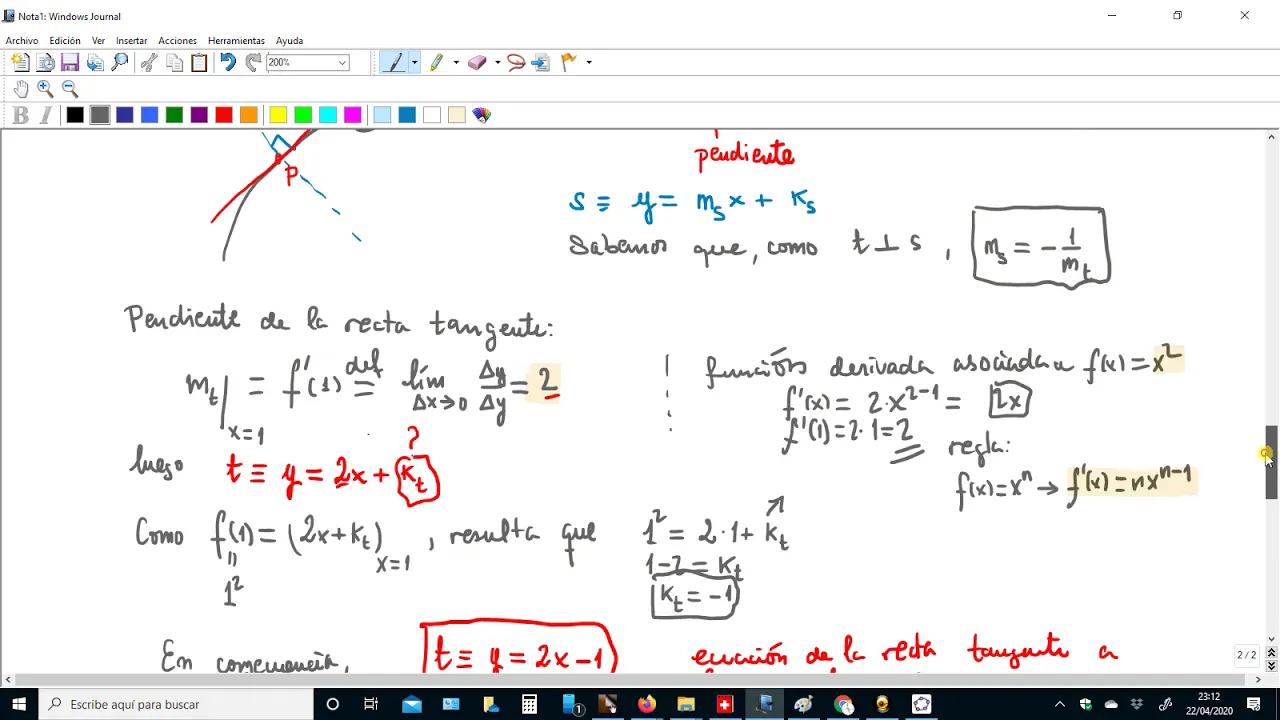 Nota1: Windows Journal
Archivo Edición Ver Insertar Acciones Herramientas Ayuda
200%
B I
P
pendiente
s ≡ y = m_s x + K_s
Sabemos que, como t ⊥ s, m_s = - 1/m_t
Pendiente de la recta tangente:
m_t|_{x=1} = f'(1) def= lím_{Δx→0} Δy/Δy = 2
función derivada asociada a f(x) = x^2
f'(x) = 2·x^{2-1} = 2x
f'(1) = 2·1 = 2
regla:
f(x) = x^n → f'(x) = n x^{n-1}
?
luego t ≡ y = 2x + K_t
Como f(1) = (2x + K_t)_{x=1}, resulta que 1^2 = 2·1 + K_t
"
1^2
1-2 = K_t
K_t = -1
En consecuencia, t ≡ y = 2x - 1 ecuación de la recta tangente a
2 / 2
Escribe aquí para buscar
23:12
22/04/2020